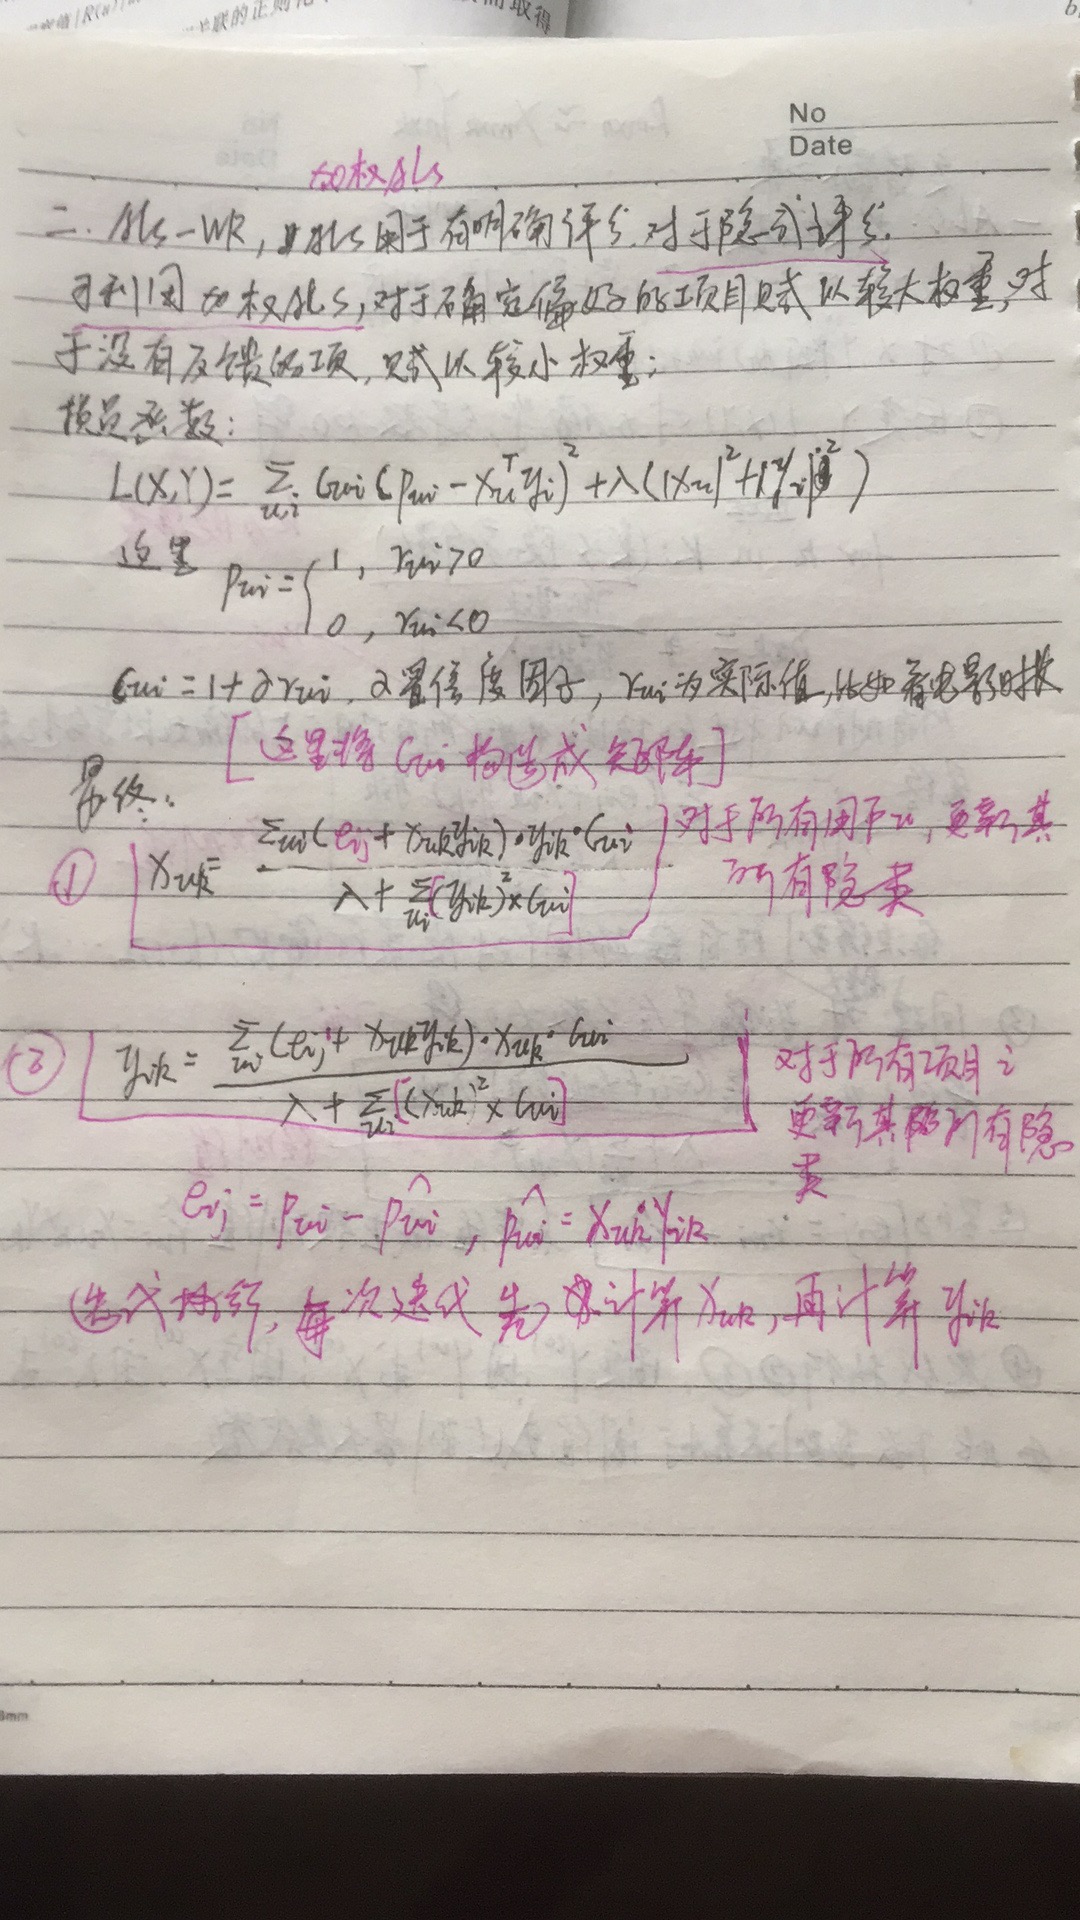 联的正则化
而取得
No
Date
加权ALS
二. ALS-WR, ALS用于有明确评分. 对于隐式评分.
可利用加权ALS, 对于确定偏好的项目赋以较大权重, 对
于没有反馈的项, 赋以较小权重;
损失函数:
L(X,Y)= Σ_{u,i} Cui(Pui - Xu^T yi)^2 + λ(|Xu|^2 + |yi|^2)
这里 Pui = { 1, rui>0
0, rui<0
Cui = 1+αrui. α置信度因子, rui为实际值, 比如看电影时长
[这里将Cui构造成矩阵]
最终:
① Xuk = Σui(eij + Xukyik)·yik·Cui / λ + Σui[(yik)^2 × Cui] 对于所有用户u, 更新其
所有隐类
② yik = Σui(eij + Xukyik)·Xuk·Cui / λ + Σui[(Xuk)^2 × Cui] 对于所有项目i
更新其所有隐
类
eij = Pui - P̂ui, P̂ui = Xuk·Yik
迭代执行, 每次迭代先计算Xuk, 再计算yik
8mm